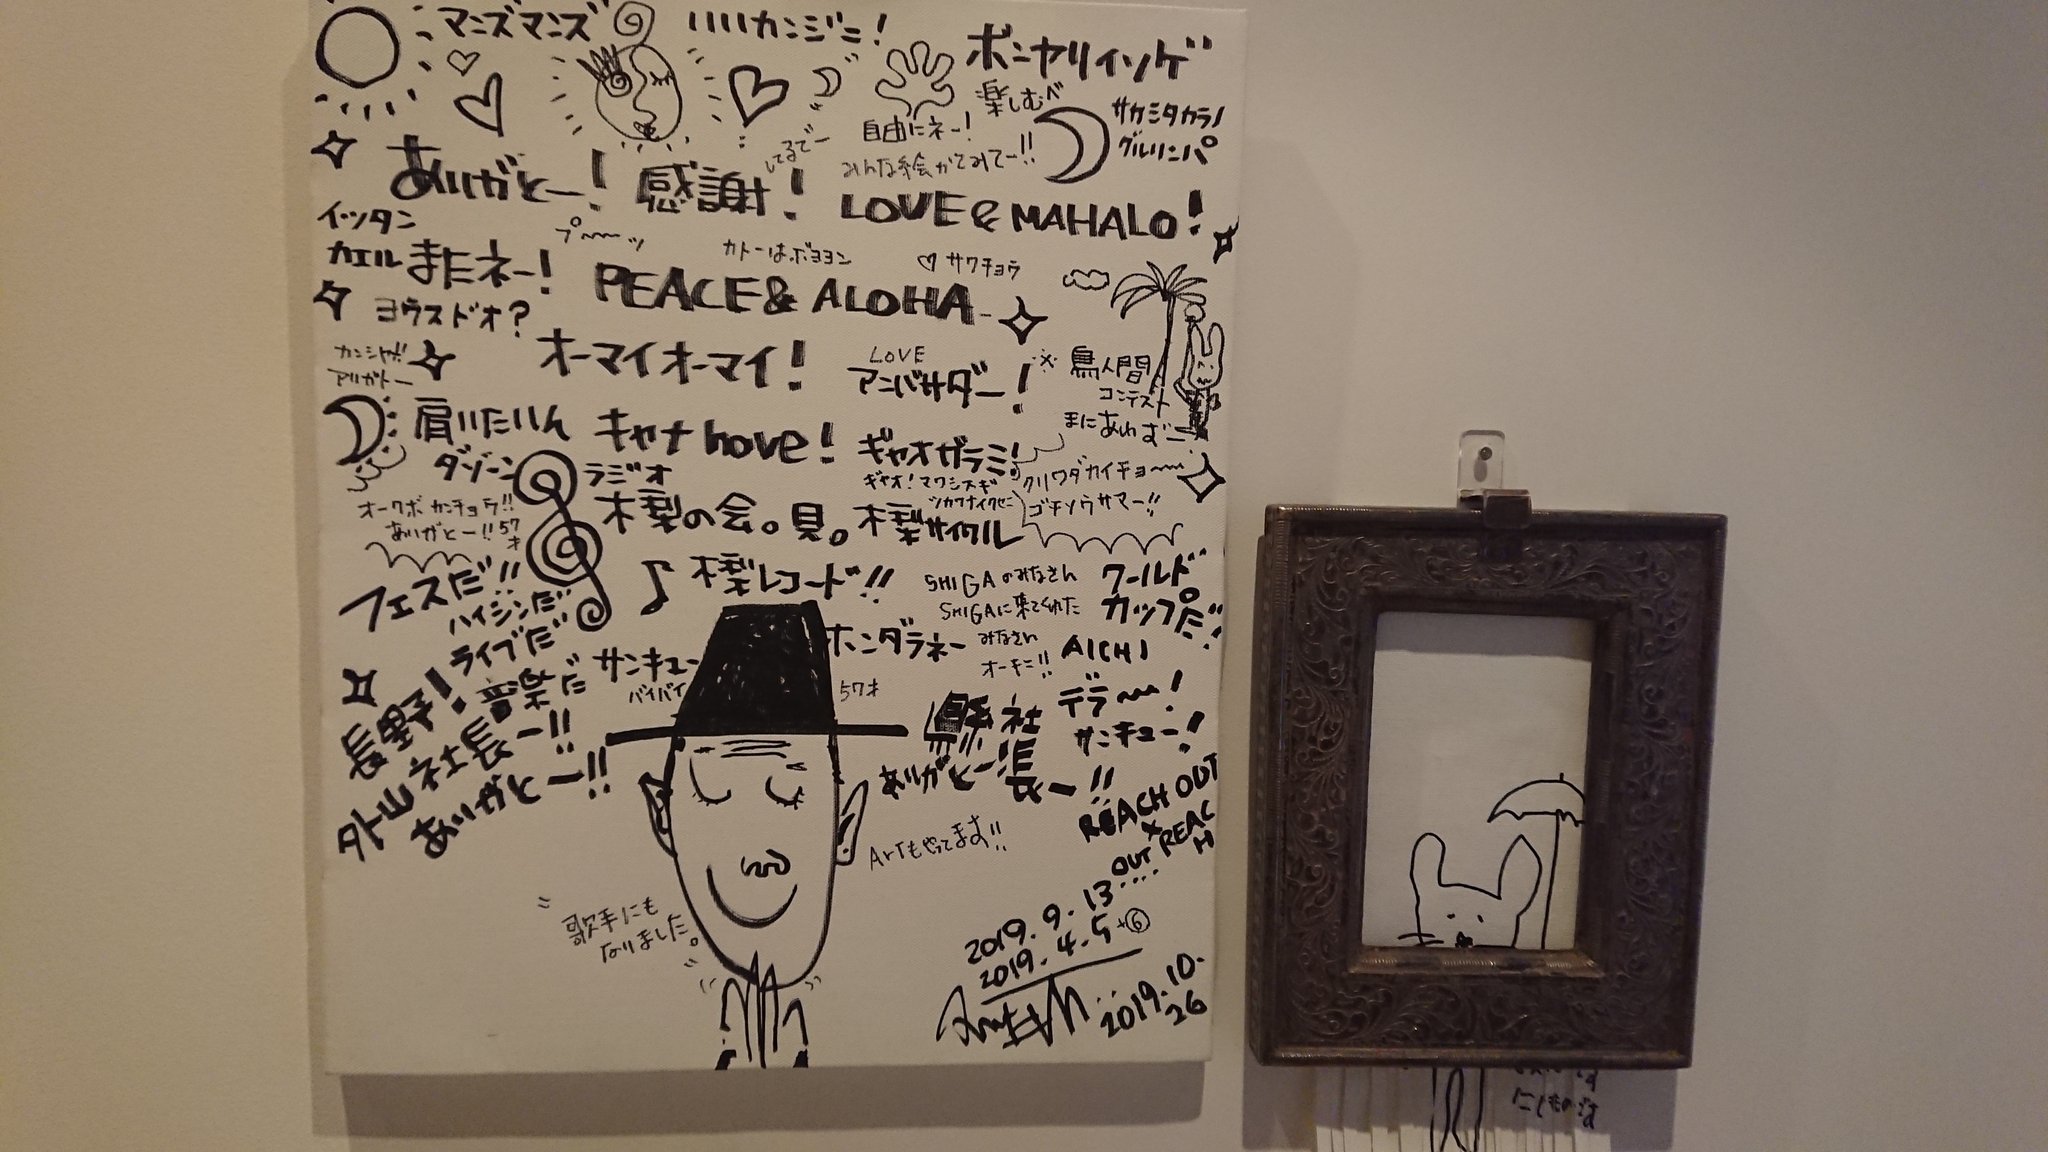 マニズマニズ
いいカンジニ!
ボンヤリィソゲ
楽しむべ
サカシタカラノ
グルリンパ
自由にネー!
みんな絵かてみてー!!
してるでー
ありがとー! 感謝! LOVE & MAHALO!
イッタン
カエル またネー!
プ〜〜ッ
カトーはボヨヨン
サクチョウ
PEACE & ALOHA
ヨウスドオ?
カンシャ!!
アリガトー
オーマイオーマイ!
LOVE
アンバサダー!
鳥人間
コンテスト
まにあわずー
肩いたいん
キャナ hove!
ギャオガラミ!
ギャオ!マワシスギ
ダゾーン
ラジオ
クリワダカイチョー〜
ゴチソウサマー!!
オークボカンチョウ!!
ありがとー!! 57才
木梨の会。見。木梨サイクル
ツカワナイクセニ
フェスだ!!
ハイジンだ
ライブだ
音楽だ
木梨レコード!!
SHIGAのみなさん
SHIGAに来てくれた
みなさん
オーキニ!!
ワールド
カップだ!
サンキュー
バイバイ
ホンダラネー
57才
AICHI
デラ〜!
サンキュー!
長野!
外山社長ー!!
ありがとー!!
社長ー!!
ありがとー!
REACH OUT
×REACH
OUT
Artもやってます!!
歌手にも
なりました。
2019.9.13
2019.4.5+⑥
2019.10.26